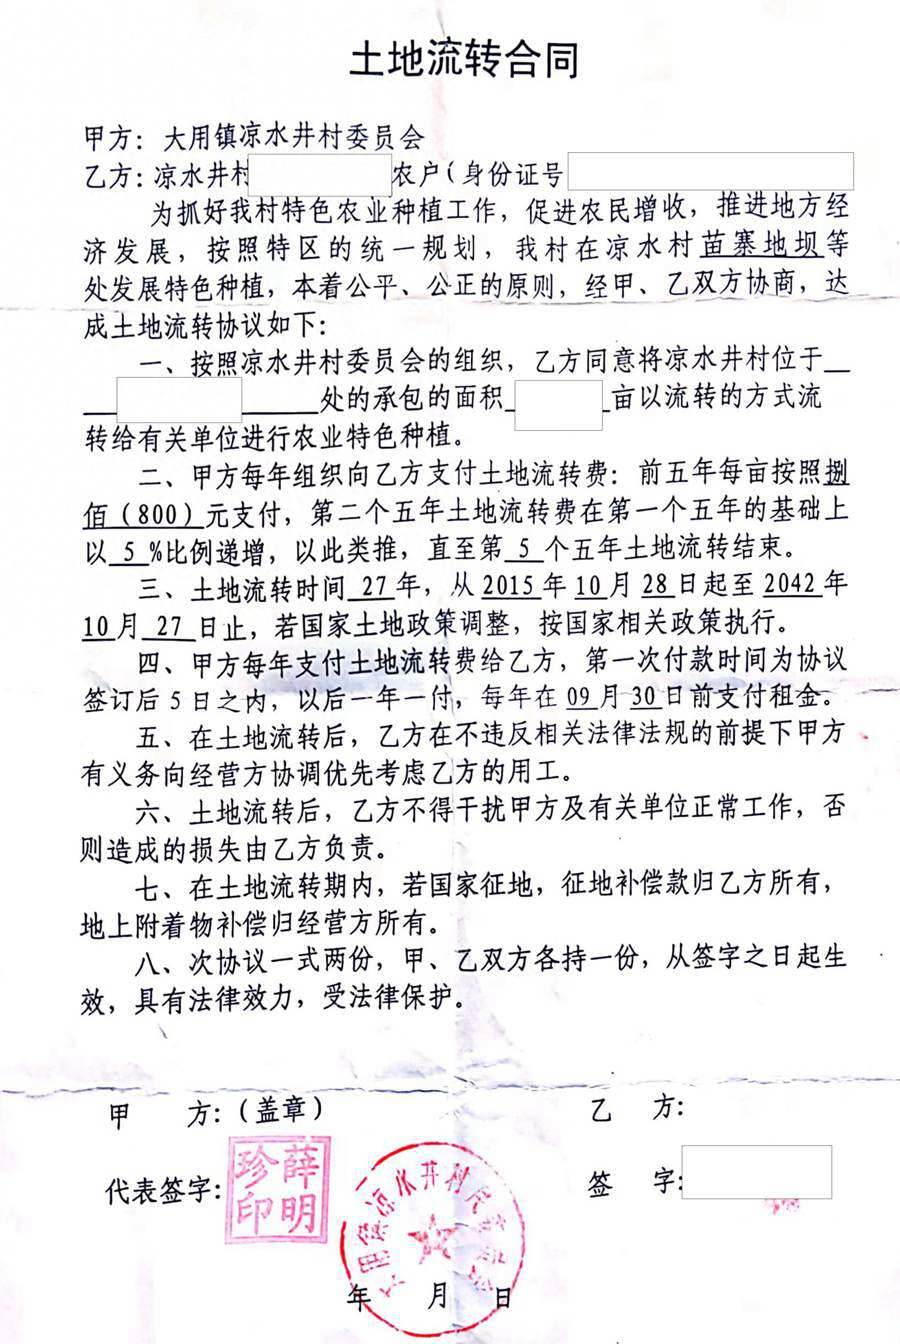 土地流转合同
甲方：大用镇凉水井村委员会
乙方：凉水井村 农户（身份证号
为抓好我村特色农业种植工作，促进农民增收，推进地方经
济发展，按照特区的统一规划，我村在凉水村苗寨地坝等
处发展特色种植，本着公平、公正的原则，经甲、乙双方协商，达
成土地流转协议如下：
一、按照凉水井村委员会的组织，乙方同意将凉水井村位于
处的承包的面积 亩以流转的方式流
转给有关单位进行农业特色种植。
二、甲方每年组织向乙方支付土地流转费：前五年每亩按照捌
佰（800）元支付，第二个五年土地流转费在第一个五年的基础上
以 5 %比例递增，以此类推，直至第 5 个五年土地流转结束。
三、土地流转时间 27 年，从 2015 年 10 月 28 日起至 2042 年
10 月 27 日止，若国家土地政策调整，按国家相关政策执行。
四、甲方每年支付土地流转费给乙方，第一次付款时间为协议
签订后 5 日之内，以后一年一付，每年在 09 月 30 日前支付租金。
五、在土地流转后，乙方在不违反相关法律法规的前提下甲方
有义务向经营方协调优先考虑乙方的用工。
六、土地流转后，乙方不得干扰甲方及有关单位正常工作，否
则造成的损失由乙方负责。
七、在土地流转期内，若国家征地，征地补偿款归乙方所有，
地上附着物补偿归经营方所有。
八、次协议一式两份，甲、乙双方各持一份，从签字之日起生
效，具有法律效力，受法律保护。
甲 方：（盖章） 乙 方：
代表签字： 签 字：
薛明珍印
年 月 日